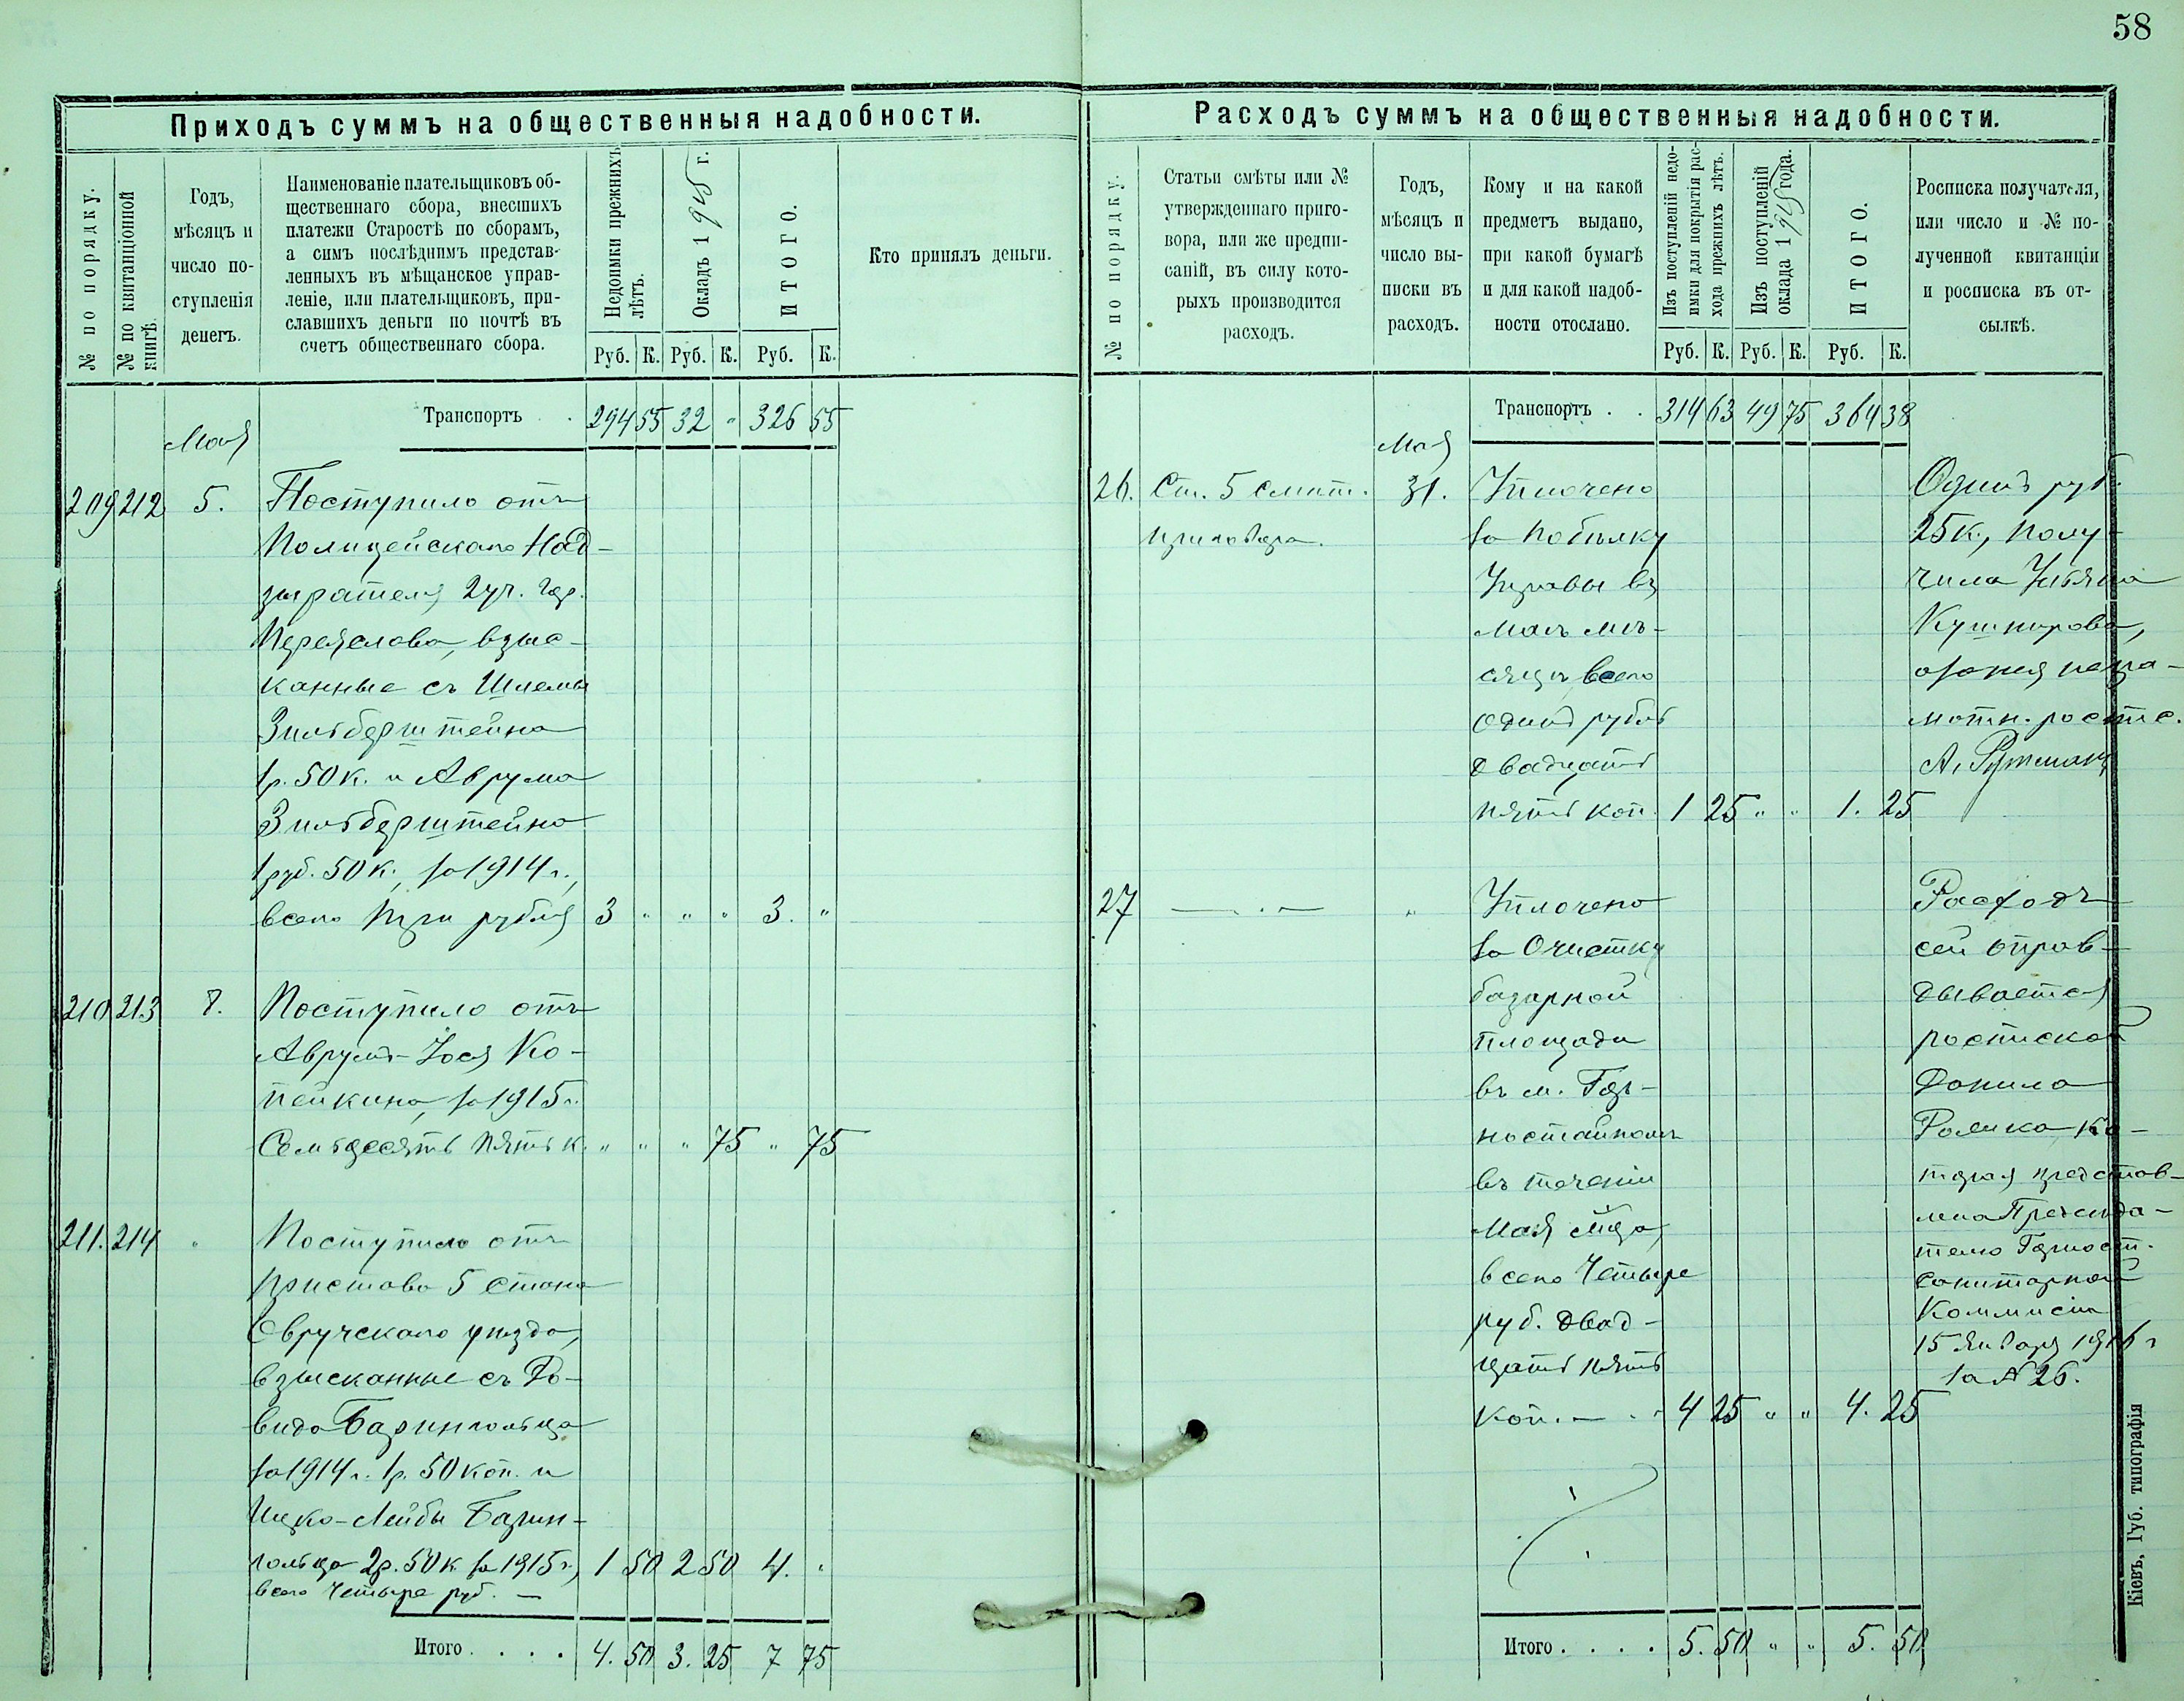 58
Приходъ суммъ на общественныя надобности.
№ по порядку.
№ по квитанціонной
книгѣ.
Годъ,
мѣсяцъ и
число по-
ступленія
денегъ.
Наименованіе плательщиковъ об-
щественнаго сбора, внесшихъ
платежи Старостѣ по сборамъ,
а симъ послѣднимъ представ-
ленныхъ въ мѣщанское управ-
леніе, или плательщиковъ, при-
славшихъ деньги по почтѣ въ
счетъ общественнаго сбора.
Недоимки прежнихъ
лѣтъ.
Окладъ 1915 г.
ИТОГО.
Руб. К. Руб. К. Руб. К.
Кто принялъ деньги.
Транспортъ . 294 55 32 " 326 55
Мая
209 212 5. Поступило отъ
Полицейскаго Над-
зирателя 2 уч. гор.
Переяслова, взыс-
канные съ Шлемы
Зильберштейна
1р. 50 к. и Аврума
Зильберштейна
1 руб. 50 к., за 1914 г.,
всего три рубля 3 " " " 3. "
210 213 8. Поступило отъ
Аврумъ-Іося Ко-
пейкина, за 1915 г.
Семьдесять пять к. " " " 75 " 75
211. 214 " Поступило отъ
Пристава 5 стана
Овручскаго уѣзда,
взысканные съ До-
вида Базингольца
за 1914 г. 1р. 50 коп. и
Ицко-Лейбы Базин-
гольца 2р. 50 к за 1915 г, 1 50 2 50 4. "
всего Четыре руб. —
Итого . . . . 4. 50 3. 25 7 75
Расходъ суммъ на общественныя надобности.
№ по порядку.
Статьи смѣты или №
утвержденнаго приго-
вора, или же предпи-
саній, въ силу кото-
рыхъ производится
расходъ.
Годъ,
мѣсяцъ и
число вы-
писки въ
расходъ.
Кому и на какой
предметъ выдано,
при какой бумагѣ
и для какой надоб-
ности отослано.
Изъ поступленій недо-
имки для покрытія рас-
хода прежнихъ лѣтъ.
Изъ поступленій
оклада 1915 года.
ИТОГО.
Руб. К. Руб. К. Руб. К.
Росписка получателя,
или число и № по-
лученной квитанціи
и росписка въ от-
сылкѣ.
Транспортъ . . 314 63 49 75 364 38
Мая
26. Ст. 5 смѣт. 31. Уплочено
приговора.
за побѣлку
Управы въ
маѣ мѣ-
сяцѣ, всего
одинъ рубль
двадцать
пять коп. 1 25 " " 1. 25
Одинъ руб.
25 к., полу-
чила Ульяна
Кушнирова,
а за нея негра-
мотн. роспис.
27 — . — " Уплочено
за Очистку
базарной
площади
въ м. Гор-
ностайполѣ
въ теченіи
Мая м-ца,
всего Четыре
руб. двад-
цать пять
коп. — 4 25 " " 4. 25
Расходъ
сей оправ-
дывается
роспиской
Данила
Ромика ко-
торая представ-
лена Предсѣда-
телю Горност.
Санитарной
Коммисіи
15 Января 1916 г
за № 26.
Итого . . . . 5. 50 " " 5. 50
Кіевъ, Губ. типографія